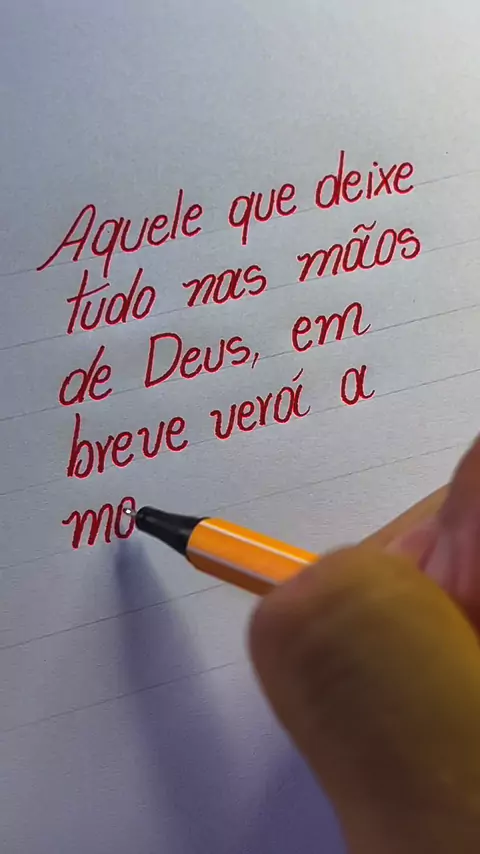 Aquele que deixe
tudo nas mãos
de Deus, em
breve verá a
mo